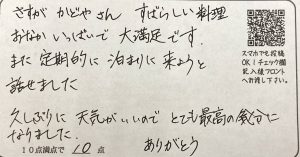 さすが かどや さん すばらしい料理
おなかいっぱいで 大満足です.
また 定期的に 泊まりに来ようと
話せました
久しぶりに 天気がいいので とても最高の気分に
なりました.
ありがとう
10点満点で 10 点
スマホでも投稿
OK!チェック欄
記入後フロント
へお渡し下さい。